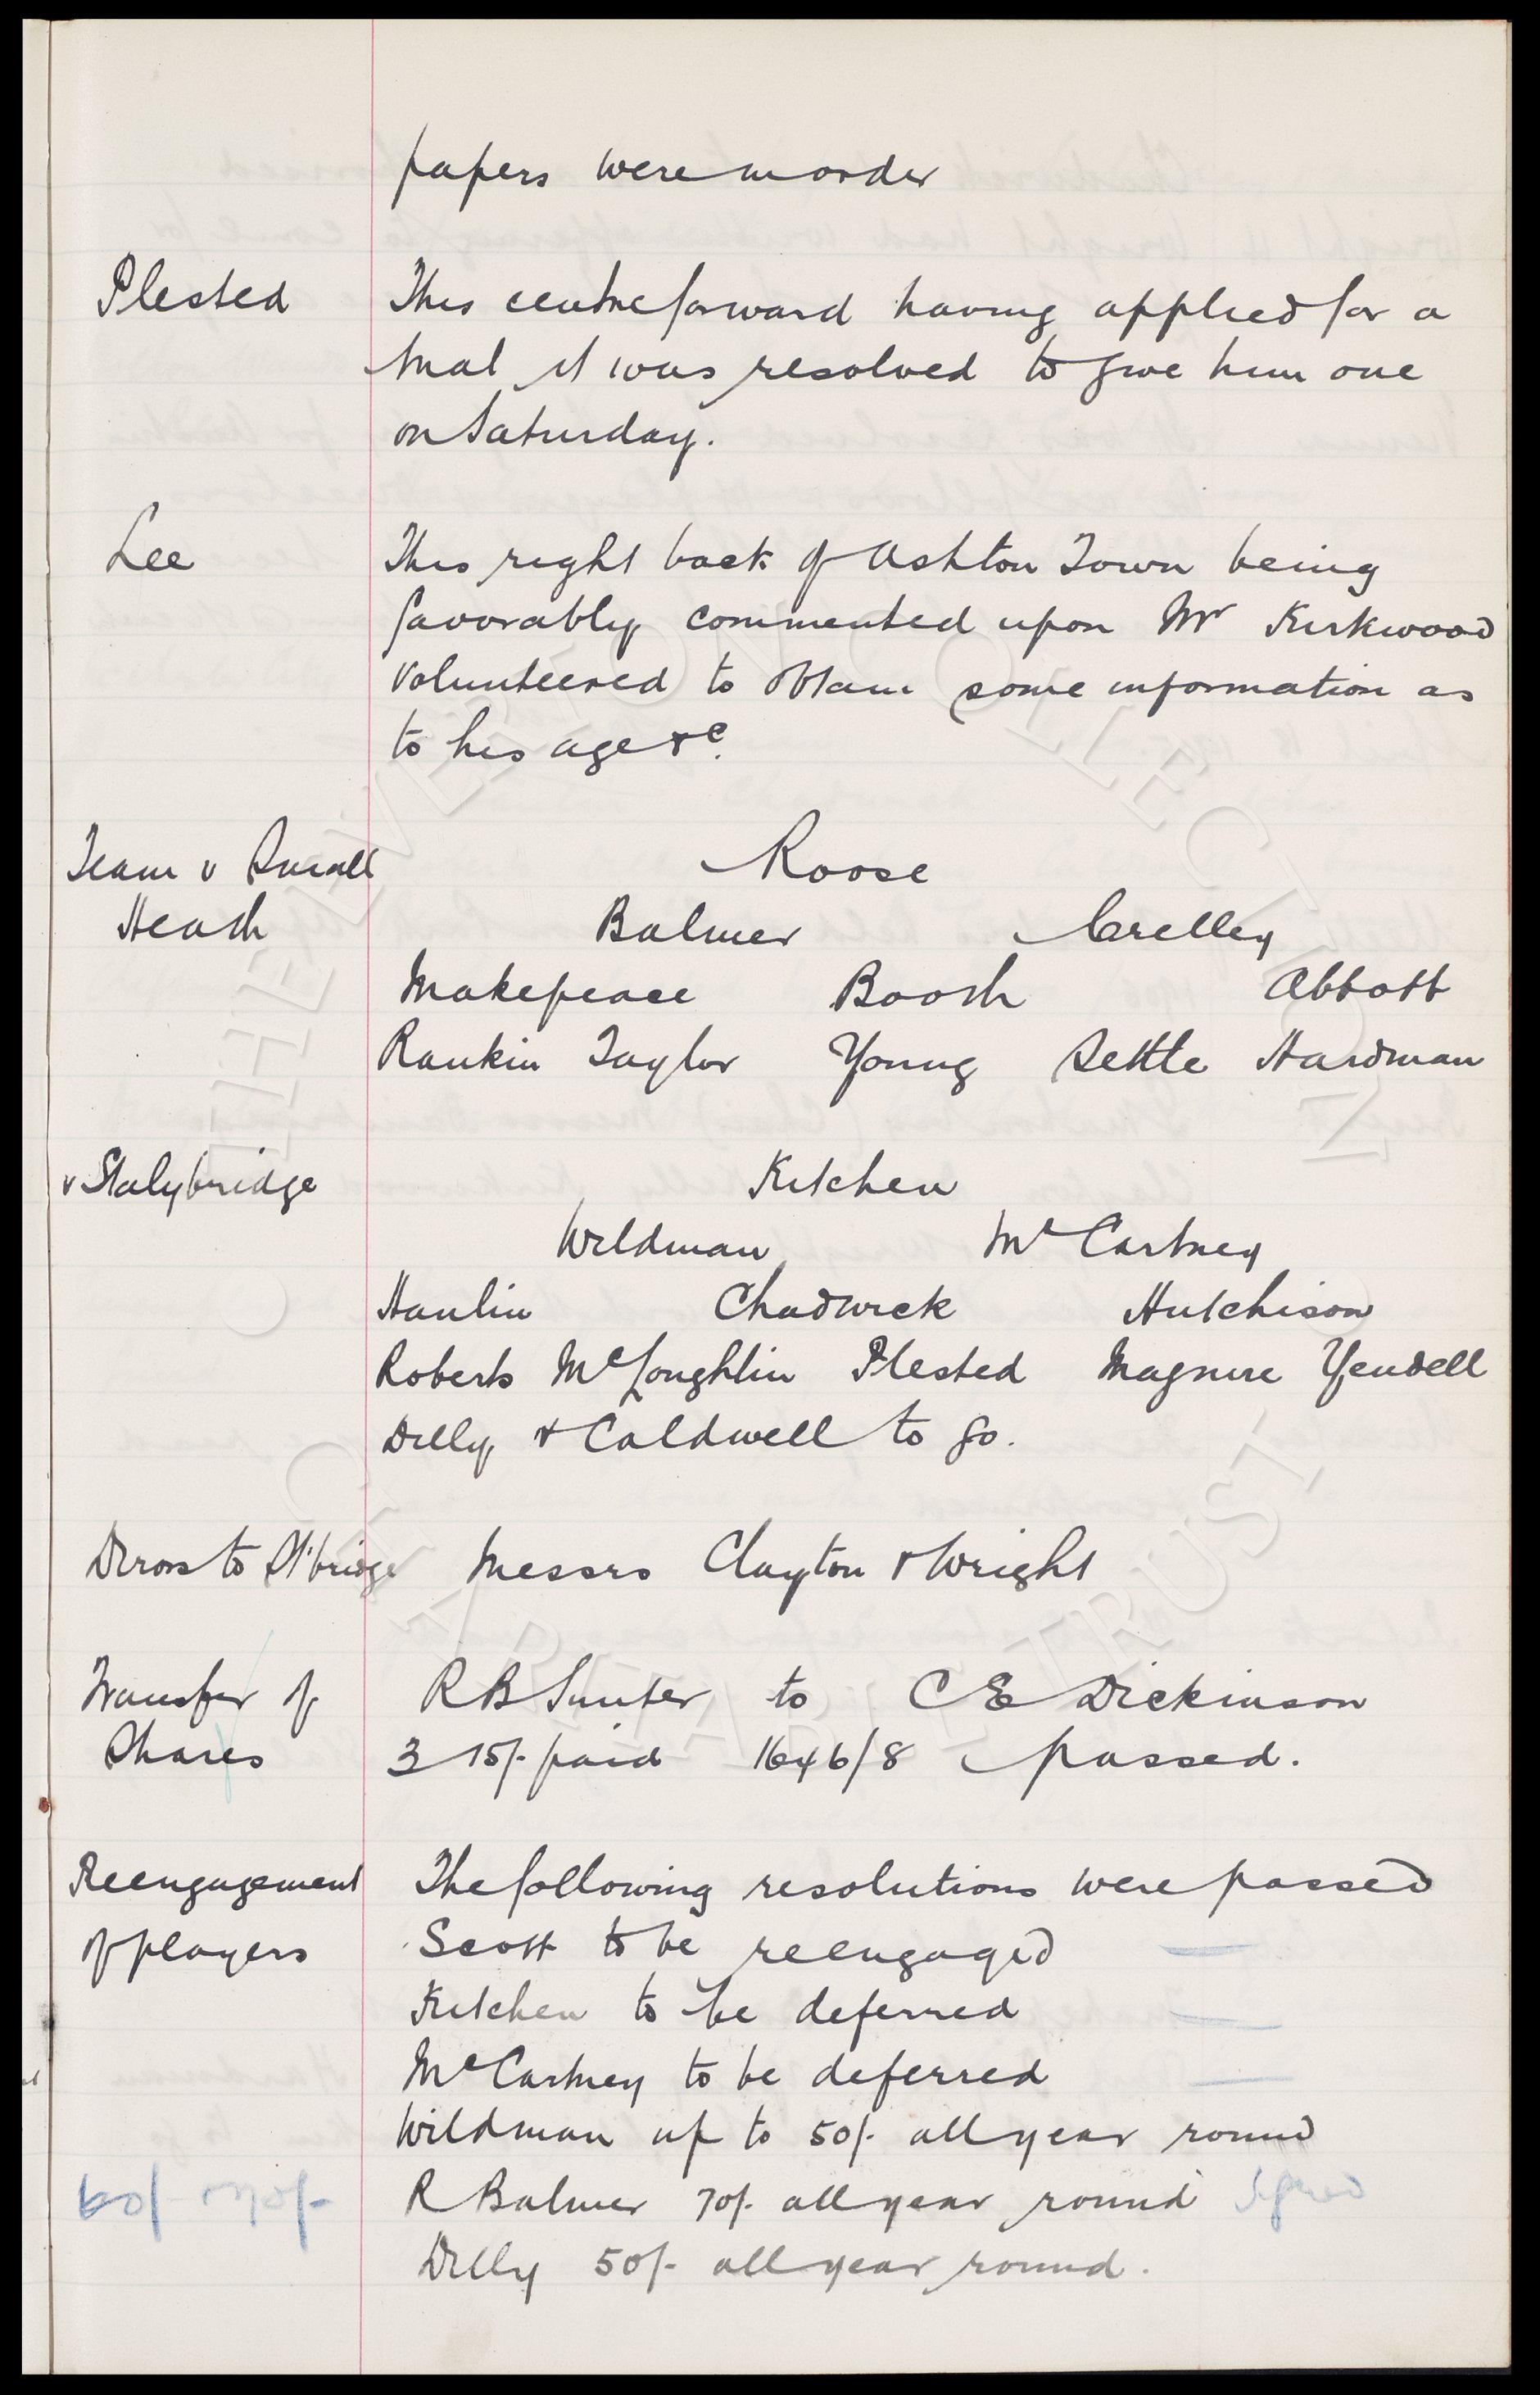 papers were in order
Plested This centre forward having applied for a
trial it was resolved to give him one
on Saturday.
Lee This right back of Ashton Town being
favorably commented upon Mr Kirkwood
volunteered to obtain some information as
to his age &c.
Team v Small Roose
Heath Balmer Crelley
Makepeace Booth Abbott
Rankin Taylor Young Settle Hardman
v Stalybridge Kitchen
Wildman McCartney
Hanlin Chadwick Hutchison
Roberts McLoughlin Plested Magnire Yendell
Dilly & Caldwell to go.
Dirors to St'bridge Messrs Clayton & Wright
Transfer of R B Sunter to C E Dickinson
Shares 3 15/- paid 1646/8 passed.
Reengagement The following resolutions were passed
of players Scott to be reengaged
Kitchen to be deferred
McCartney to be deferred
Wildman up to 50/- all year round
60/- 70/- R Balmer 70/- all year round signed
Dilly 50/- all year round.
THE EVERTON COLLECTION
CHARITABLE TRUST